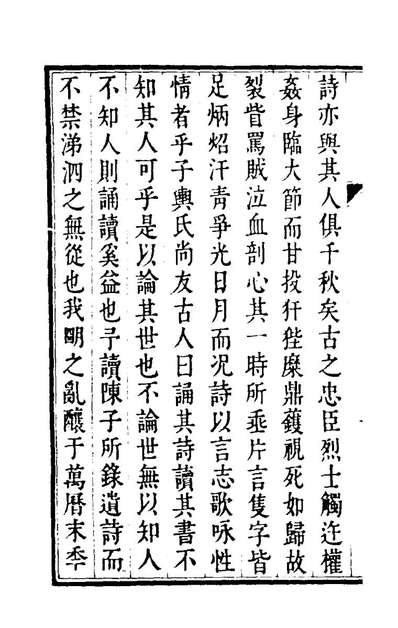 詩亦與其人俱千秋矣古之忠臣烈士觸迕權
姦身臨大節而甘投犴狴糜鼎鑊視死如歸故
裂眥罵賊泣血剖心其一時所垂片言隻字皆
足炳炤汗青爭光日月而況詩以言志歌咏性
情者乎子輿氏尚友古人曰誦其詩讀其書不
知其人可乎是以論其世也不論世無以知人
不知人則誦讀奚益也予讀陳子所錄遺詩而
不禁涕泗之無從也我明之亂釀于萬曆末季